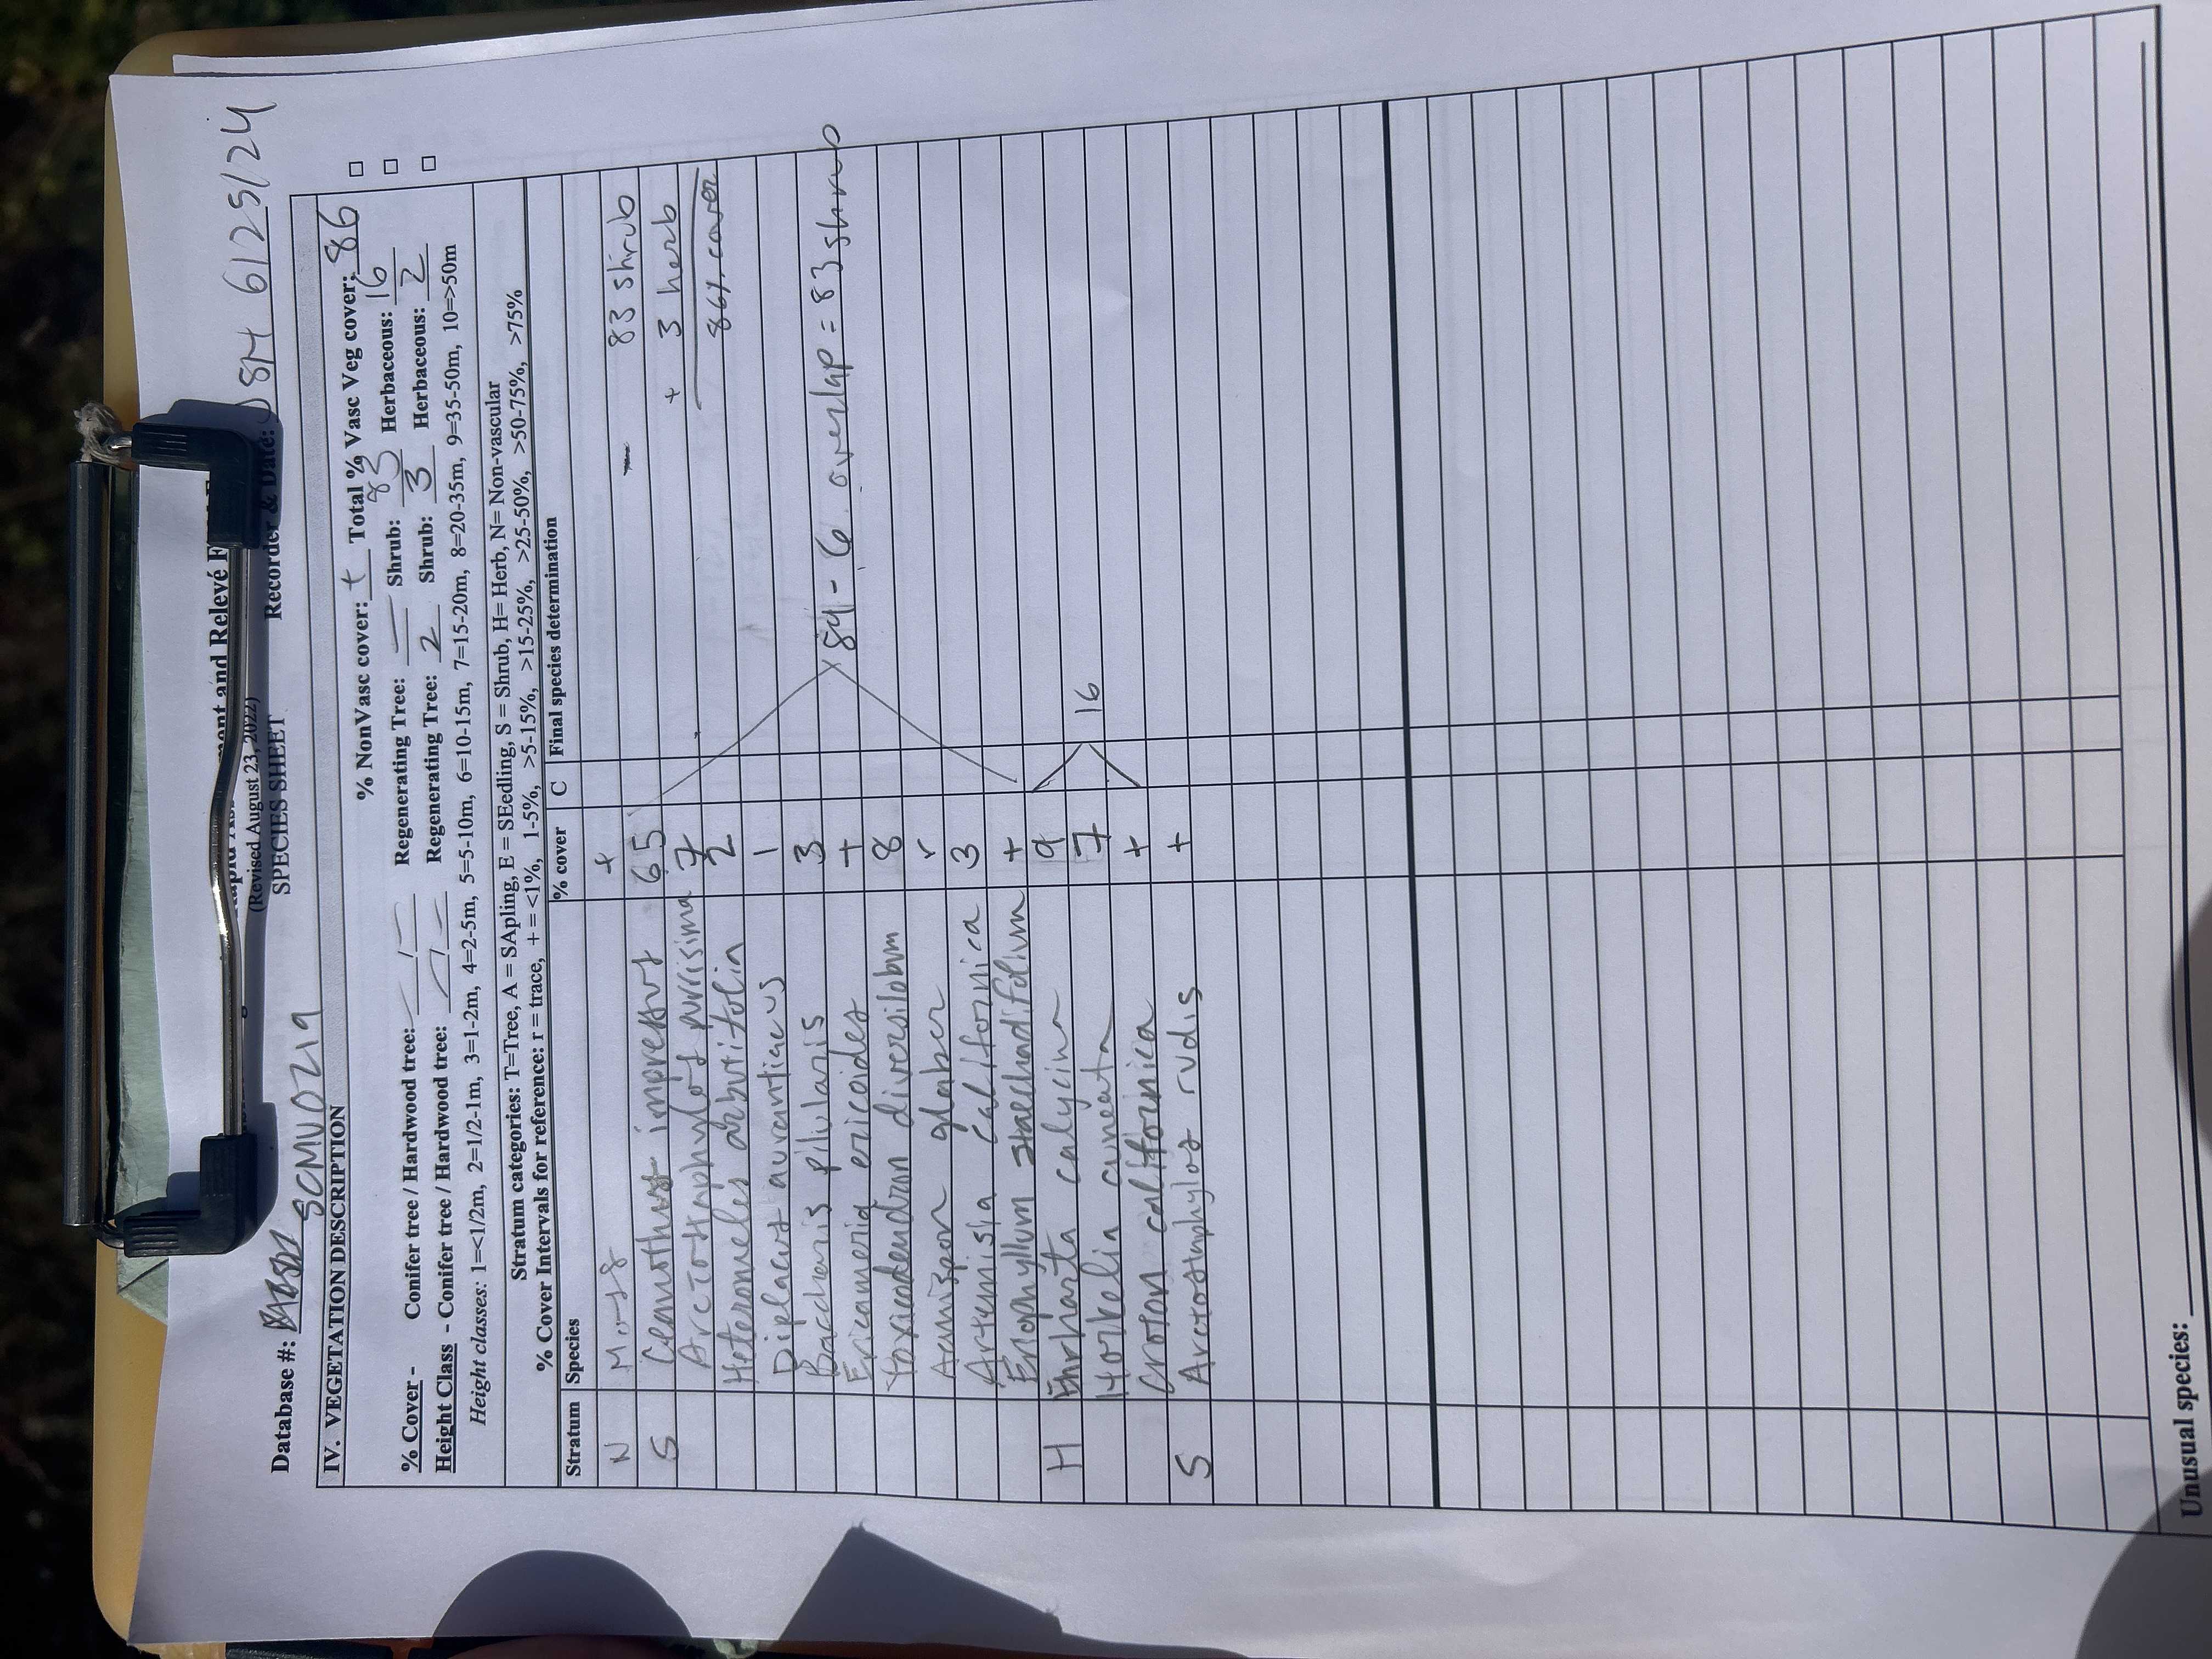 ment and Relevé F
(Revised August 23, 2022)
SPECIES SHEET
Database #: SCMU0219
Recorder & Date: 6/25/24
IV. VEGETATION DESCRIPTION
% NonVasc cover: t Total % Vasc Veg cover: 86
% Cover - Conifer tree / Hardwood tree: — / — Regenerating Tree: — Shrub: 83 Herbaceous: 16
Height Class - Conifer tree / Hardwood tree: — / — Regenerating Tree: 2 Shrub: 3 Herbaceous: 2
Height classes: 1=<1/2m, 2=1/2-1m, 3=1-2m, 4=2-5m, 5=5-10m, 6=10-15m, 7=15-20m, 8=20-35m, 9=35-50m, 10=>50m
Stratum categories: T=Tree, A = SApling, E = SEedling, S = Shrub, H= Herb, N= Non-vascular
% Cover Intervals for reference: r = trace, + = <1%, 1-5%, >5-15%, >15-25%, >25-50%, >50-75%, >75%
Stratum Species % cover C Final species determination
N Moss + 83 shrub
S Ceanothus impressus 65 + 3 herb
Arctostaphylos purissima 7 86% cover
Heteromeles arbutifolia 2
Diplacus aurantiacus 1
Baccharis pilularis 3 89 - 6 overlap = 83 shrub
Ericameria ericoides +
Toxicodendron diversilobum 8
Acmispon glaber r
Artemisia californica 3
Eriophyllum staechadifolium +
H Ehrharta calycina 9
Horkelia cuneata 7 16
Croton californica +
S Arctostaphylos rudis +
Unusual species: